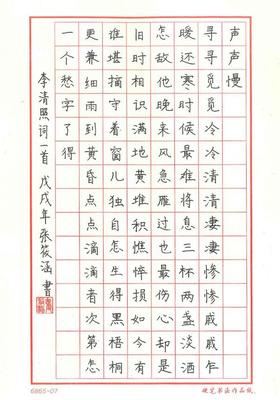 声声慢
寻寻觅觅冷冷清清凄凄惨惨戚戚乍
暖还寒时候最难将息三杯两盏淡酒
怎敌他晚来风急雁过也最伤心却是
旧时相识满地黄堆积憔悴损如今有
谁堪摘守着窗儿独自怎生得黑梧桐
更兼细雨到黄昏点点滴滴者次第怎
一个愁字了得
李清照词一首 戊戌年 张筱涵 书
6865-07
硬笔书法作品纸